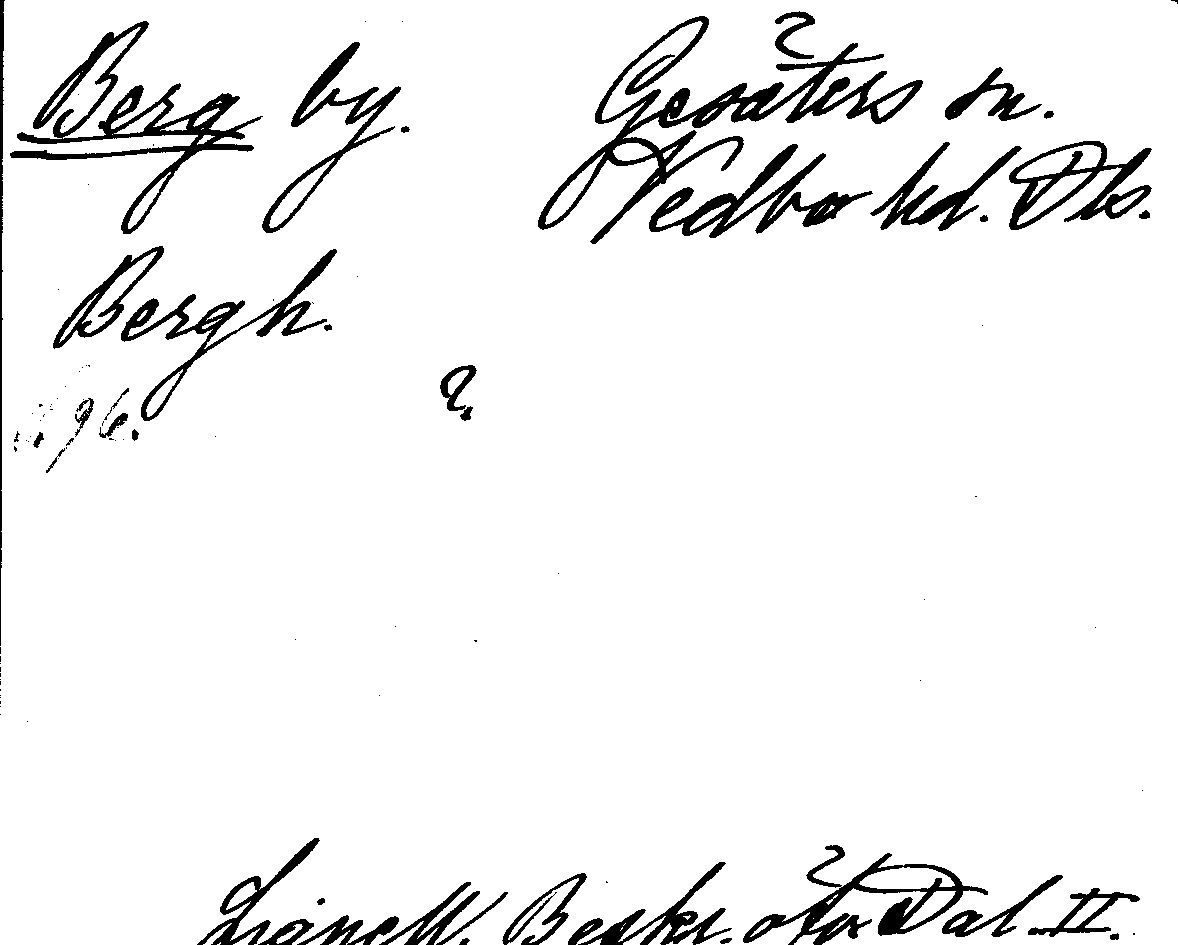 Berg by. Gesäters sn.
Vedbo hd. Dls.
Bergh.
s. 96. ?
Lignell, Beskr. öfv. Dal. II.